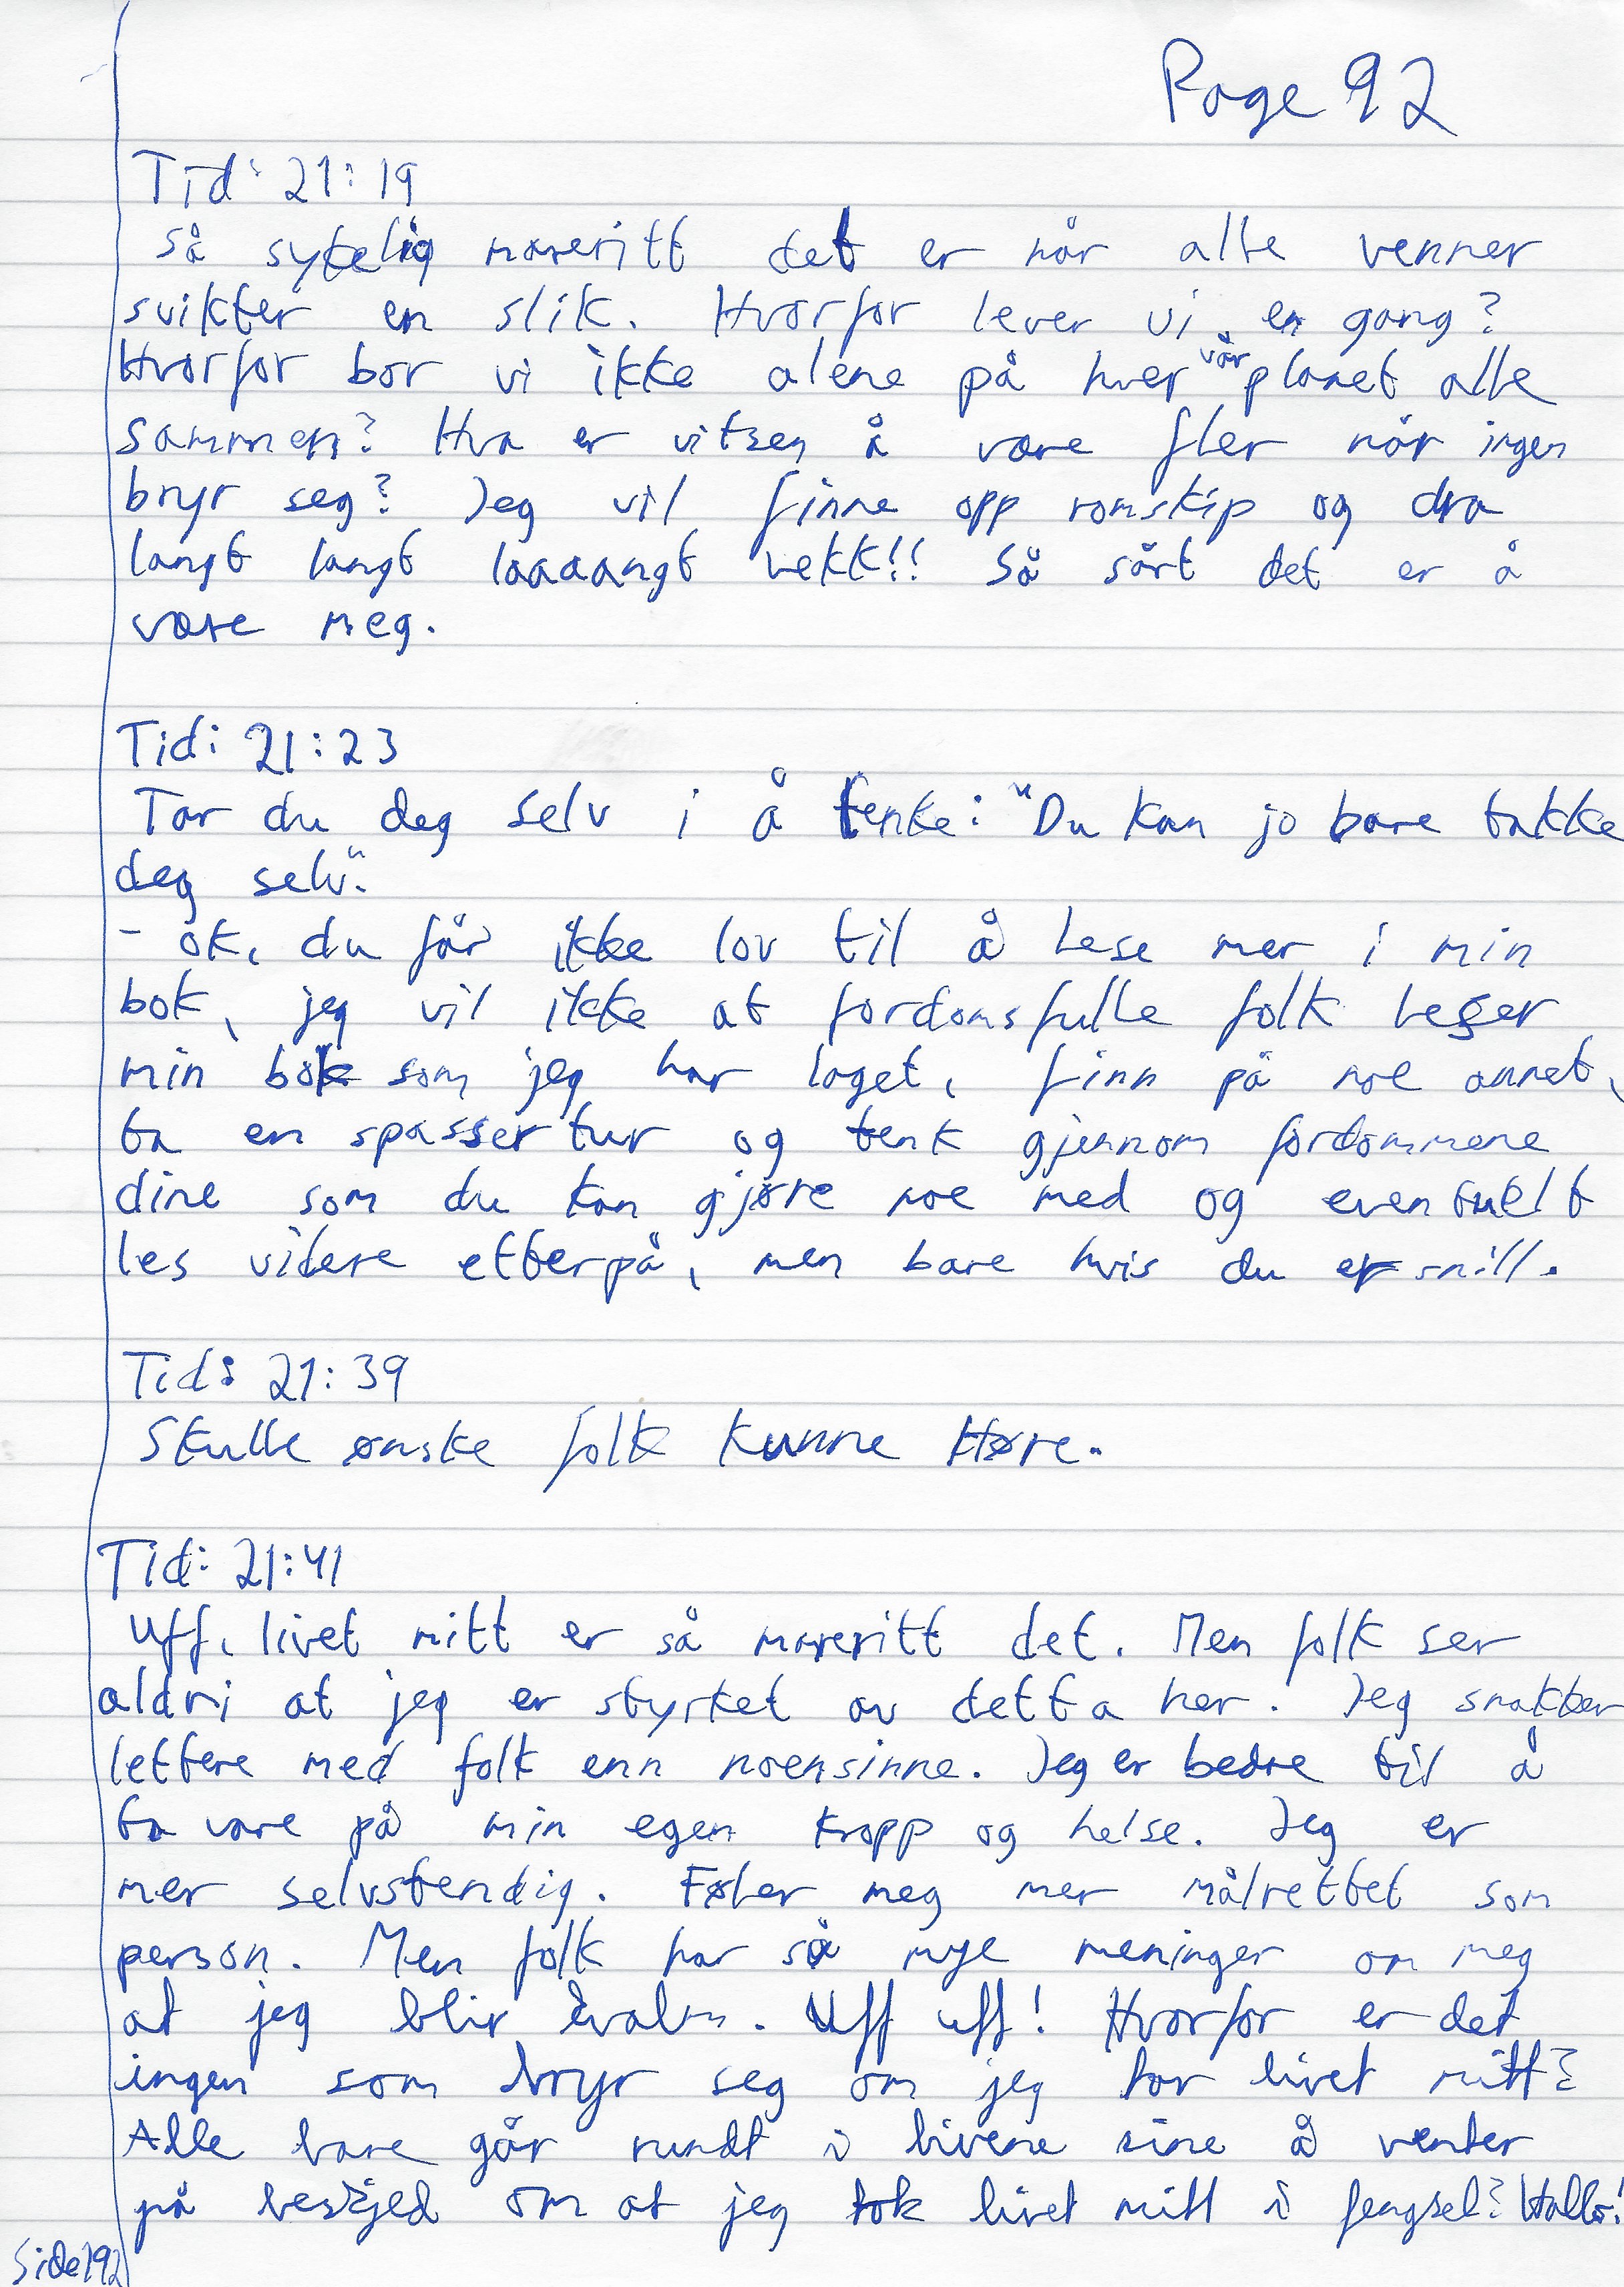 Page 92
Tid: 21:19
Så sykelig mareritt det er når alle venner
svikter en slik. Hvorfor lever vi en gang?
Hvorfor bor vi ikke alene på hver vår planet alle
sammen? Hva er vitsen å være fler når ingen
bryr seg? Jeg vil finne opp romskip og dra
langt langt laaaangt vekk!! Så sårt det er å
være meg.
Tid: 21:23
Tar du deg selv i å tenke: "Du kan jo bare takke
deg selv".
- ok, du får ikke lov til å lese mer i min
bok, jeg vil ikke at fordomsfulle folk leser
min bok som jeg har laget, finn på noe annet,
ta en spassertur og tenk gjennom fordommene
dine som du kan gjøre noe med og eventuelt
les videre etterpå, men bare hvis du er snill.
Tid: 21:39
Skulle ønske folk kunne Høre.
Tid: 21:41
Uff, livet mitt er så mareritt det. Men folk ser
aldri at jeg er styrket av detta her! Jeg snakker
lettere med folk enn noensinne. Jeg er bedre til å
ta vare på min egen kropp og helse. Jeg er
mer selvstendig. Føler meg mer målrettet som
person. Men folk har så mye meninger om meg
at jeg blir kvalm. Uff uff! Hvorfor er det
ingen som bryr seg om jeg tar livet mitt?
Alle bare går rundt i livene sine å venter
på beskjed om at jeg tok livet mitt i fengsel? Hallo!
Side 192